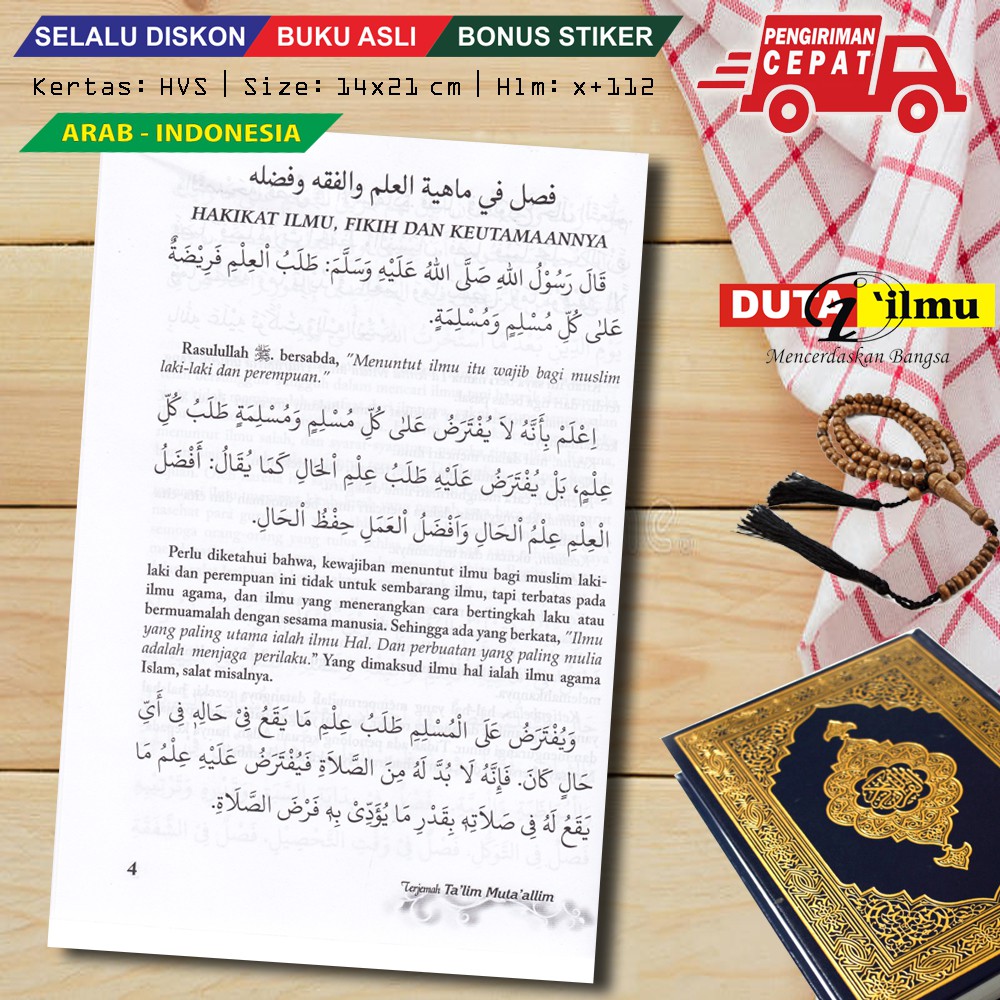 SELALU DISKON BUKU ASLI BONUS STIKER
Kertas: HVS | Size: 14x21 cm | Hlm: x+112
ARAB - INDONESIA
PENGIRIMAN
CEPAT
فصل في ماهية العلم والفقه وفضله
HAKIKAT ILMU, FIKIH DAN KEUTAMAANNYA
قَالَ رَسُوْلُ اللهِ صَلَّى اللهُ عَلَيْهِ وَسَلَّمَ: طَلَبُ الْعِلْمِ فَرِيْضَةٌ
عَلىٰ كُلِّ مُسْلِمٍ وَمُسْلِمَةٍ.
Rasulullah ﷺ. bersabda, "Menuntut ilmu itu wajib bagi muslim
laki-laki dan perempuan."
اِعْلَمْ بِأَنَّهُ لاَ يُفْتَرَضُ عَلىٰ كُلِّ مُسْلِمٍ وَمُسْلِمَةٍ طَلَبُ كُلِّ
عِلْمٍ، بَلْ يُفْتَرَضُ عَلَيْهِ طَلَبُ عِلْمِ الْحَالِ كَمَا يُقَالُ: أَفْضَلُ
الْعِلْمِ عِلْمُ الْحَالِ وَأَفْضَلُ الْعَمَلِ حِفْظُ الْحَالِ.
Perlu diketahui bahwa, kewajiban menuntut ilmu bagi muslim laki-
laki dan perempuan ini tidak untuk sembarang ilmu, tapi terbatas pada
ilmu agama, dan ilmu yang menerangkan cara bertingkah laku atau
bermuamalah dengan sesama manusia. Sehingga ada yang berkata, "Ilmu
yang paling utama ialah ilmu Hal. Dan perbuatan yang paling mulia
adalah menjaga perilaku." Yang dimaksud ilmu hal ialah ilmu agama
Islam, salat misalnya.
وَيُفْتَرَضُ عَلَى الْمُسْلِمِ طَلَبُ عِلْمِ مَا يَقَعُ فِيْ حَالِهِ فِي أَيِّ
حَالٍ كَانَ. فَإِنَّهُ لَا بُدَّ لَهُ مِنَ الصَّلَاةِ فَيُفْتَرَضُ عَلَيْهِ عِلْمُ مَا
يَقَعُ لَهُ فِى صَلاَتِهِ بِقَدْرِ مَا يُؤَدِّيْ بِهِ فَرْضَ الصَّلَاةِ.
4
Terjemah Ta'lim Muta'allim
DUTA 'ilmu
Mencerdaskan Bangsa